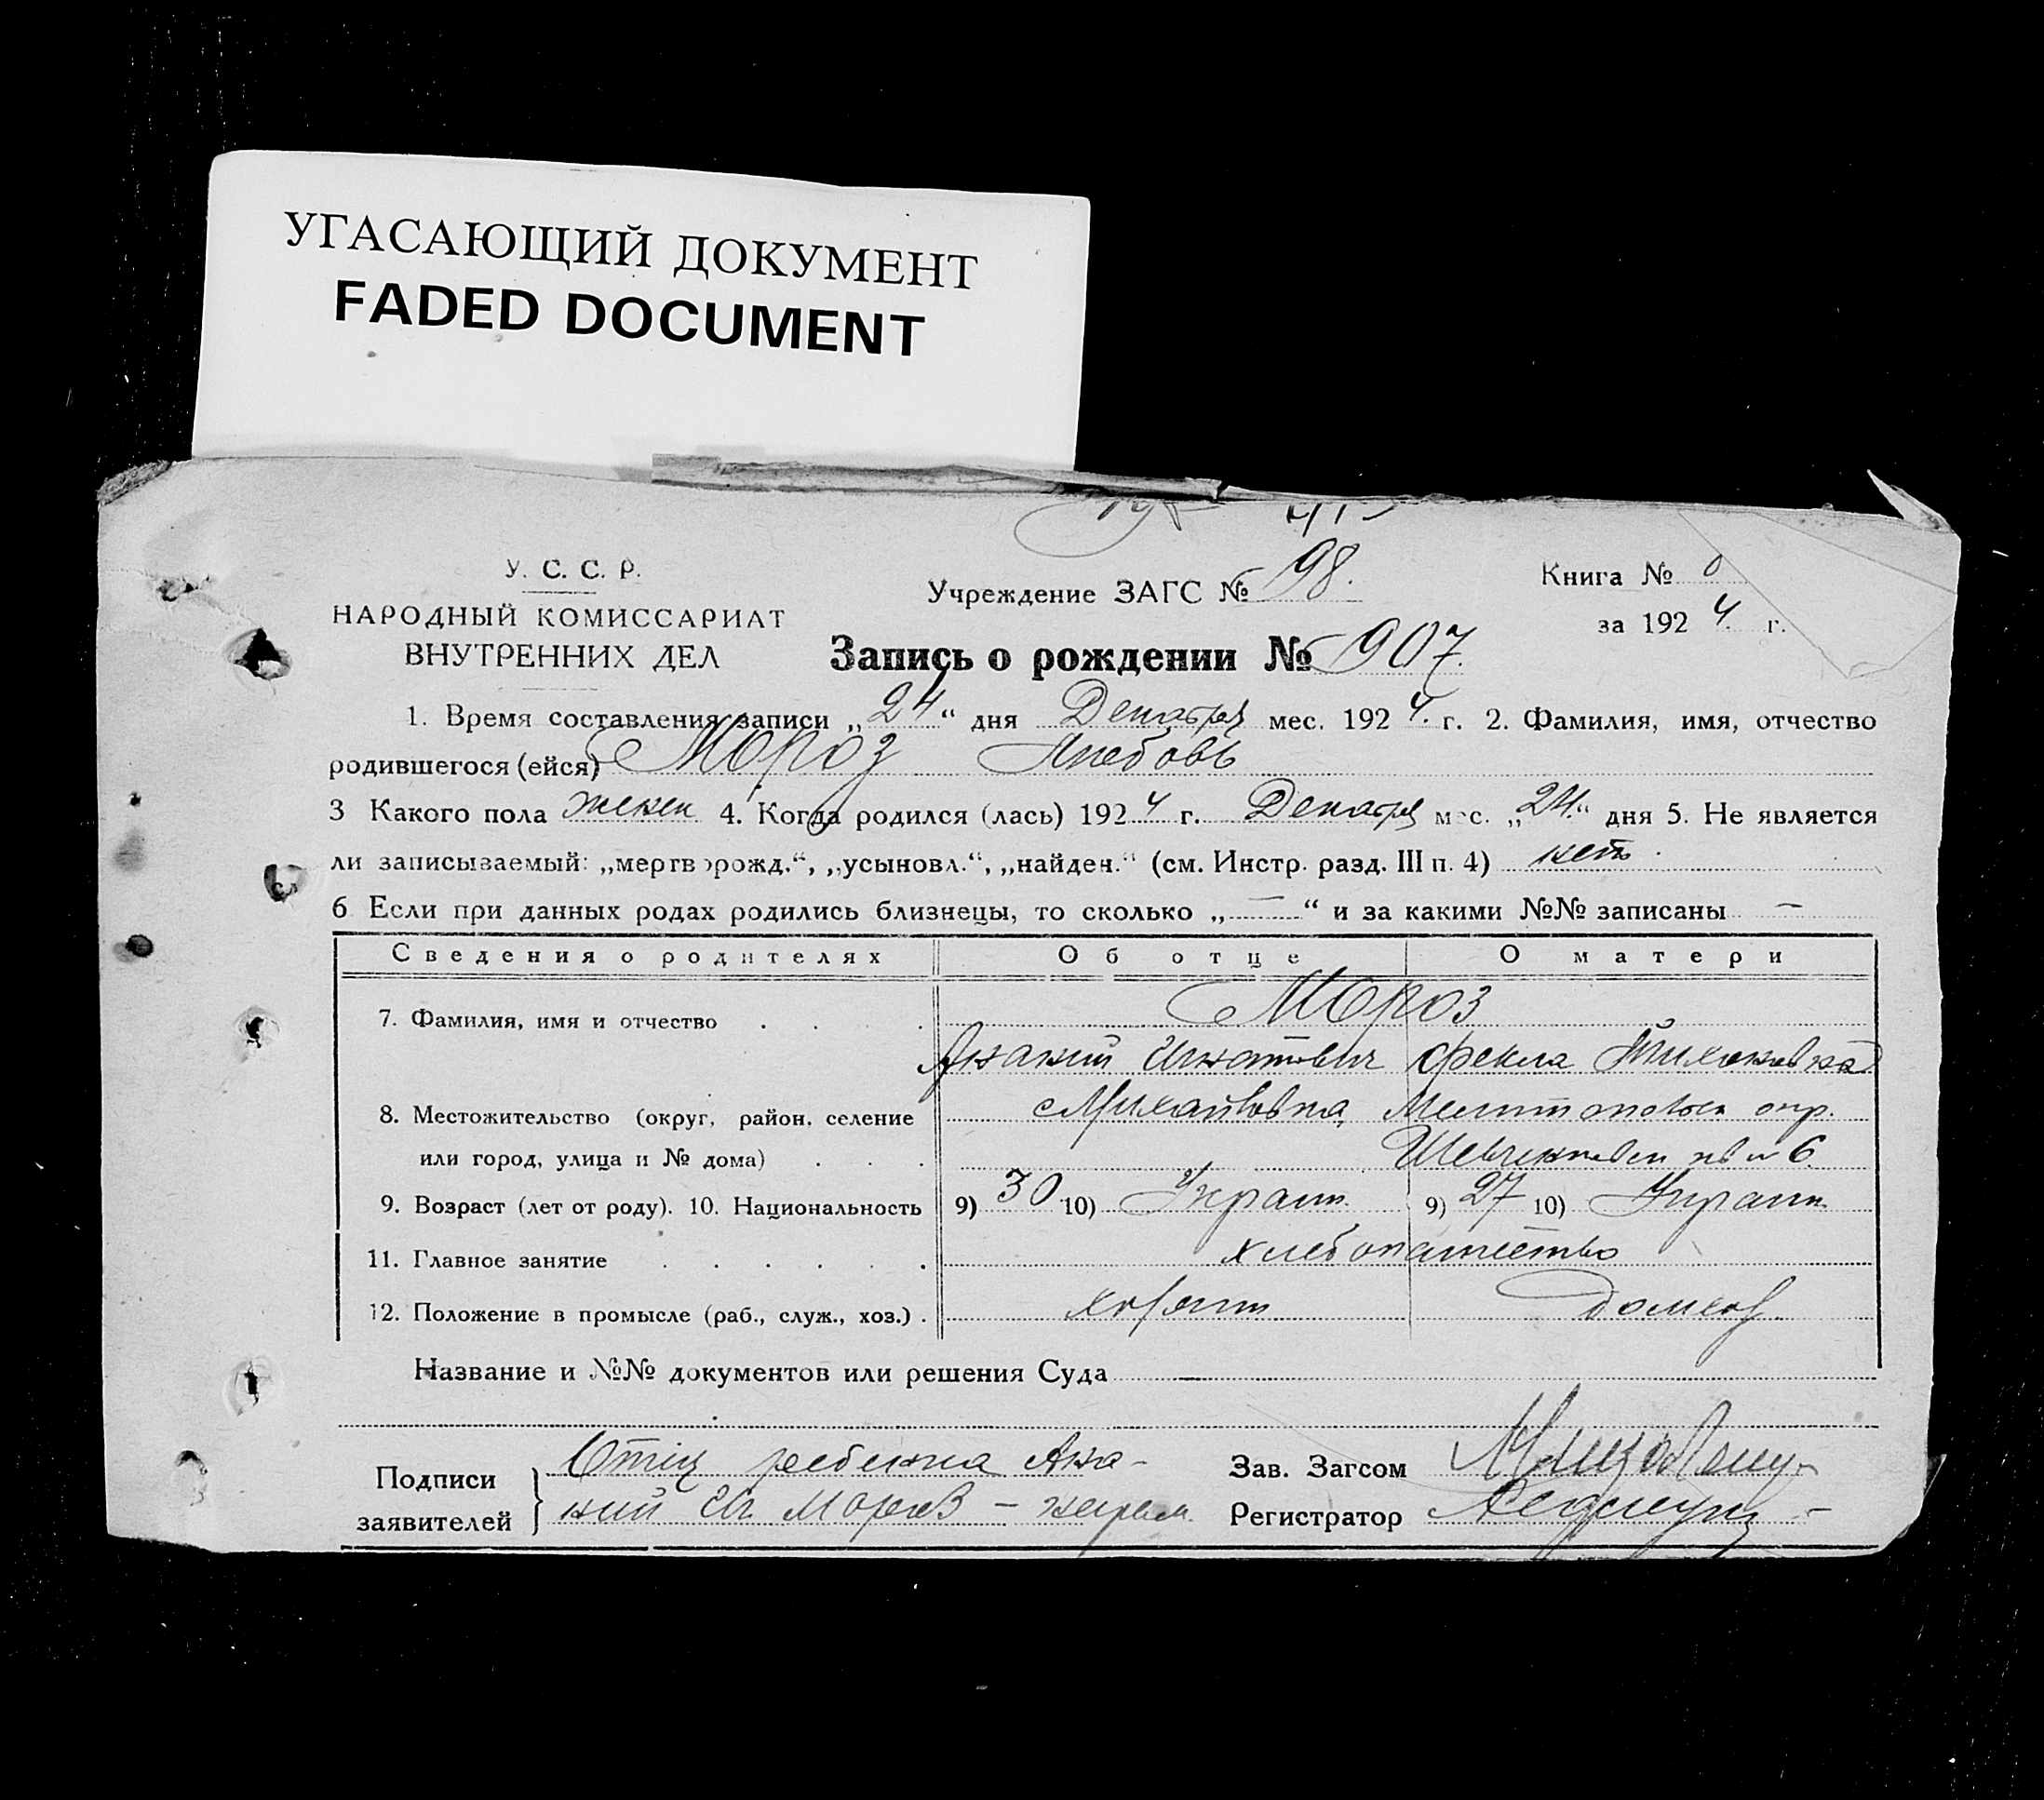 УГАСАЮЩИЙ ДОКУМЕНТ
FADED DOCUMENT
У. С. С. Р.
НАРОДНЫЙ КОМИССАРИАТ
ВНУТРЕННИХ ДЕЛ
Учреждение ЗАГС № 98.
Книга №
за 1924 г.
Запись о рождении № 907.
1. Время составления записи „24“ дня Декабря мес. 1924 г. 2. Фамилия, имя, отчество
родившегося (ейся) Мороз Любовь
3 Какого пола женск 4. Когда родился (лась) 1924 г. Декабря мес. „24“ дня 5. Не является
ли записываемый: „мертворожд.“, „усыновл.“, „найден.“ (см. Инстр. разд. III п. 4) нет.
6 Если при данных родах родились близнецы, то сколько „—“ и за какими №№ записаны —
Сведения о родителях Об отце О матери
7. Фамилия, имя и отчество . . . . Мороз
Акакий Игнатович Фекла Тихоновна
8. Местожительство (округ, район, селение Михайловка, Мелитопольск окр.
или город, улица и № дома) . . . 6
9. Возраст (лет от роду). 10. Национальность 9) 30 10) Украин. 9) 27 10) Украин.
11. Главное занятие . . . . . . хлебопашество
12. Положение в промысле (раб., служ., хоз.) . хозяин домхоз.
Название и №№ документов или решения Суда —
Подписи заявителей Отец ребенка Ака-
кий Иг. Мороз —
Зав. Загсом
Регистратор